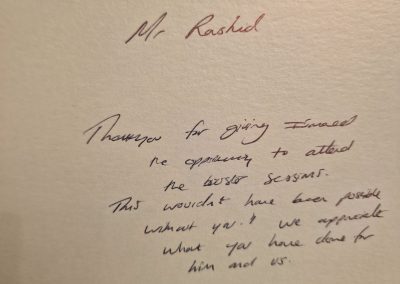 Mr Rashid
Thankyou for giving Ismaeel
the oppurtunity to attend
the booster sessions.
This wouldn't have been possible
without you!! We appreciate
what you have done for
him and us.